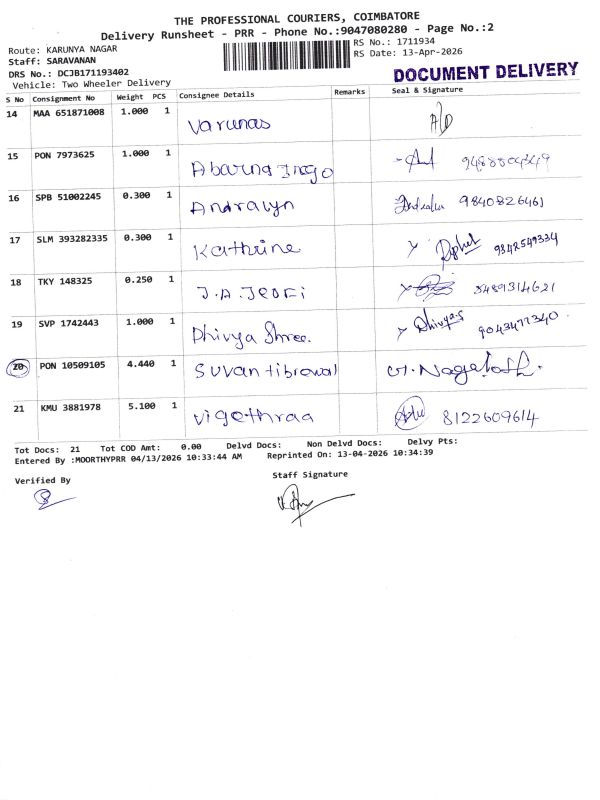 THE PROFESSIONAL COURIERS, COIMBATORE
Delivery Runsheet - PRR - Phone No.:9047080280 - Page No.:2
Route: KARUNYA NAGAR RS No.: 1711934
Staff: SARAVANAN RS Date: 13-Apr-2026
DRS No.: DCJB171193402
Vehicle: Two Wheeler Delivery DOCUMENT DELIVERY
S No Consignment No Weight PCS Consignee Details Remarks Seal & Signature
14 MAA 651871008 1.000 1 Varunas
15 PON 7973625 1.000 1 Abarna
16 SPB 51002245 0.300 1 Andralyn 9840826461
17 SLM 393282335 0.300 1 Kathrine 9342549334
18 TKY 148325 0.250 1 J.A.
19 SVP 1742443 1.000 1 Dhivya Shree. Dhivya.S
20 PON 10509105 4.440 1
21 KMU 3881978 5.100 1 Vigethraa 8122609614
Tot Docs: 21 Tot COD Amt: 0.00 Delvd Docs: Non Delvd Docs: Delvy Pts:
Entered By :MOORTHYPRR 04/13/2026 10:33:44 AM Reprinted On: 13-04-2026 10:34:39
Verified By Staff Signature